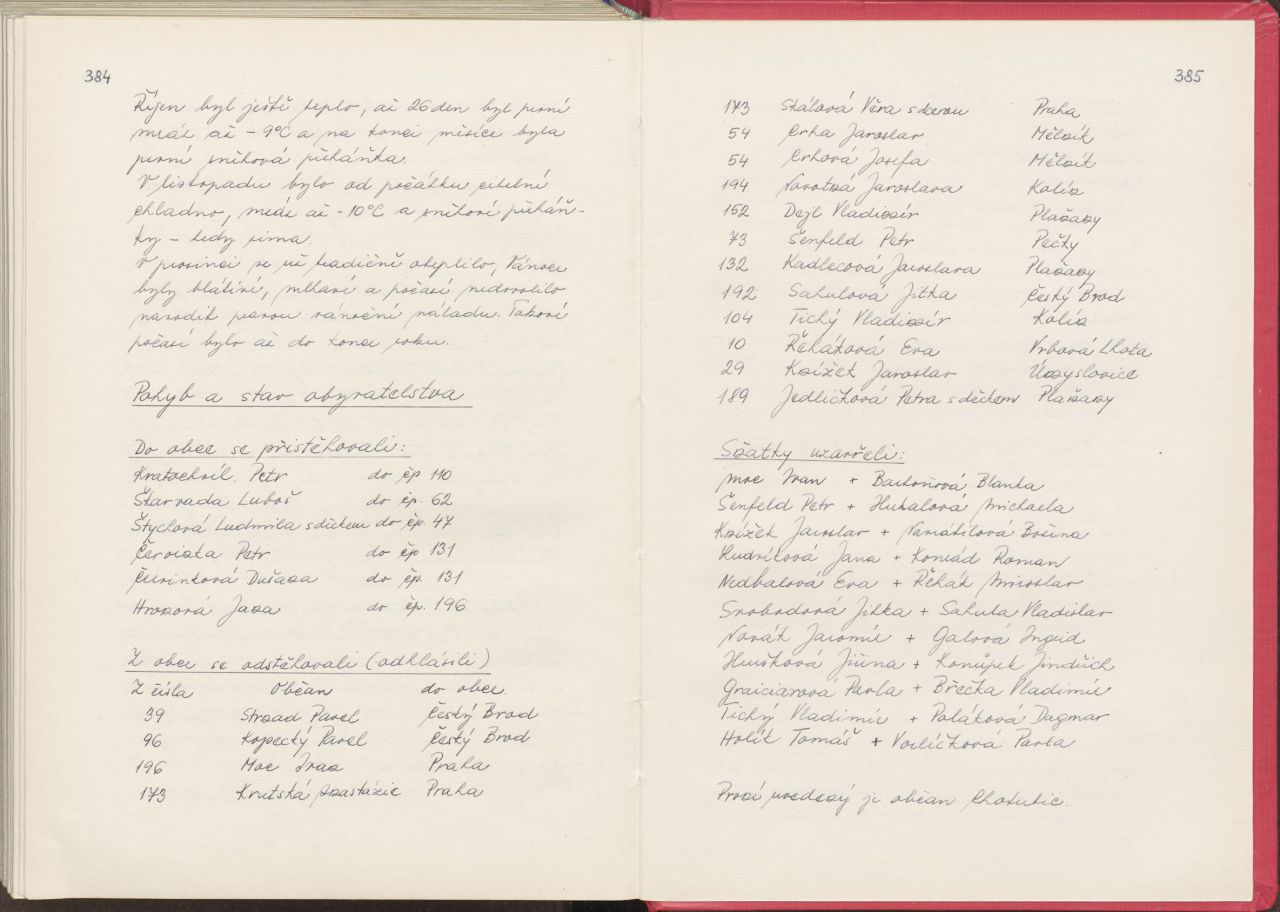 384
Říjen byl ještě teplo, až 26 den byl první
mráz až - 9°C a na konci měsíce byla
první sněhová přeháňka.
V listopadu bylo od počátku citelně
chladno, mráz až -10°C a sněhové přeháň-
ky - tedy zima.
V prosinci se už tradičně oteplilo, Vánoce
byly blátivé, mlhavé a počasí nedovolilo
navodit pravou vánoční náladu. Takové
počasí bylo až do konce roku.
Pohyb a stav obyvatelstva
Do obce se přistěhovali:
Kratochvíl Petr do čp 110
Škarvada Luboš do čp. 62
Štychová Ludmila s dítkem do čp. 47
Červinka Petr do čp 131
Čurinková Dušana do čp. 131
Hronová Jana do čp. 196
Z obce se odstěhovali (odhlásili)
Z čísla Občan do obce.
39 Strnad Pavel Český Brod
96 Kopecký Pavel Český Brod
196 Moc Ivan Praha
173 Krutská Anastázie Praha
385
173 Skálová Věra s dcerou Praha
54 Crha Jaroslav Mělník
54 Crhová Josefa Mělník
194 Novotná Jaroslava Kolín
152 Dejl Vladimír Plaňany
73 Šenfeld Petr Pečky
132 Kadlecová Jaroslava Plaňany
192 Sahulová Jitka Český Brod
104 Tichý Vladimír Kolín
10 Řeháková Eva Vrbová Lhota
29 Knížek Jaroslav Úmyslovice
189 Jedličková Petra s děckem Plaňany
Sňatky uzavřeli:
Moc Ivan + Bartoňová Blanka
Šenfeld Petr + Hukalová Michaela
Knížek Jaroslav + Navrátilová Božena
Hudríková Jana + Konrád Roman
Nedbalová Eva + Řehák Miroslav
Svobodová Jitka + Sahula Vladislav
Novák Jaromír + Galová Ingrid
Hrušková Jiřina + Konůpek Jindřich
Graiciarová Pavla + Břečka Vladimír
Tichý Vladimír + Poláková Dagmar
Holík Tomáš + Vorlíčková Pavla
První uvedený je občan Chotutic.